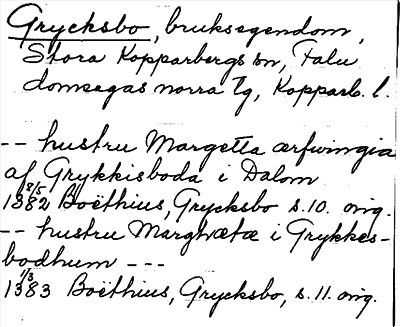 Grycksbo, bruksegendom,
Stora Kopparbergs sn, Falu
domsagas norra tg, Kopparb. l.
-- hustru Margetta ærfwingia
af Grykkisboda i Dalom
1382 8/5 Boëthius, Grycksbo s. 10. orig.
-- hustru Marghætæ i Grykkes-
bodhum ---
1383 1/3 Boëthius, Grycksbo, s. 11. orig.